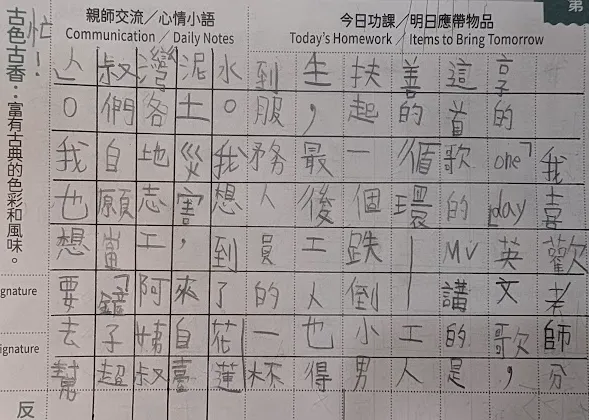 第
今日功課／明日應帶物品
Today's Homework / Items to Bring Tomorrow
親師交流／心情小語
Communication / Daily Notes
我喜歡老師分
享的「one day」英文歌，
這首歌的MV講的是
善的循環——工人
扶起一個跌倒小男
生，最後工人也得
到服務人員的一杯
水。我想到了花蓮
泥土災害，來自臺
灣各地志工阿姨叔
叔們自願當「鏟子超
人」。我也想要去幫
忙！
古色古香：富有古典的色彩和風味。
gnature
ignature
反